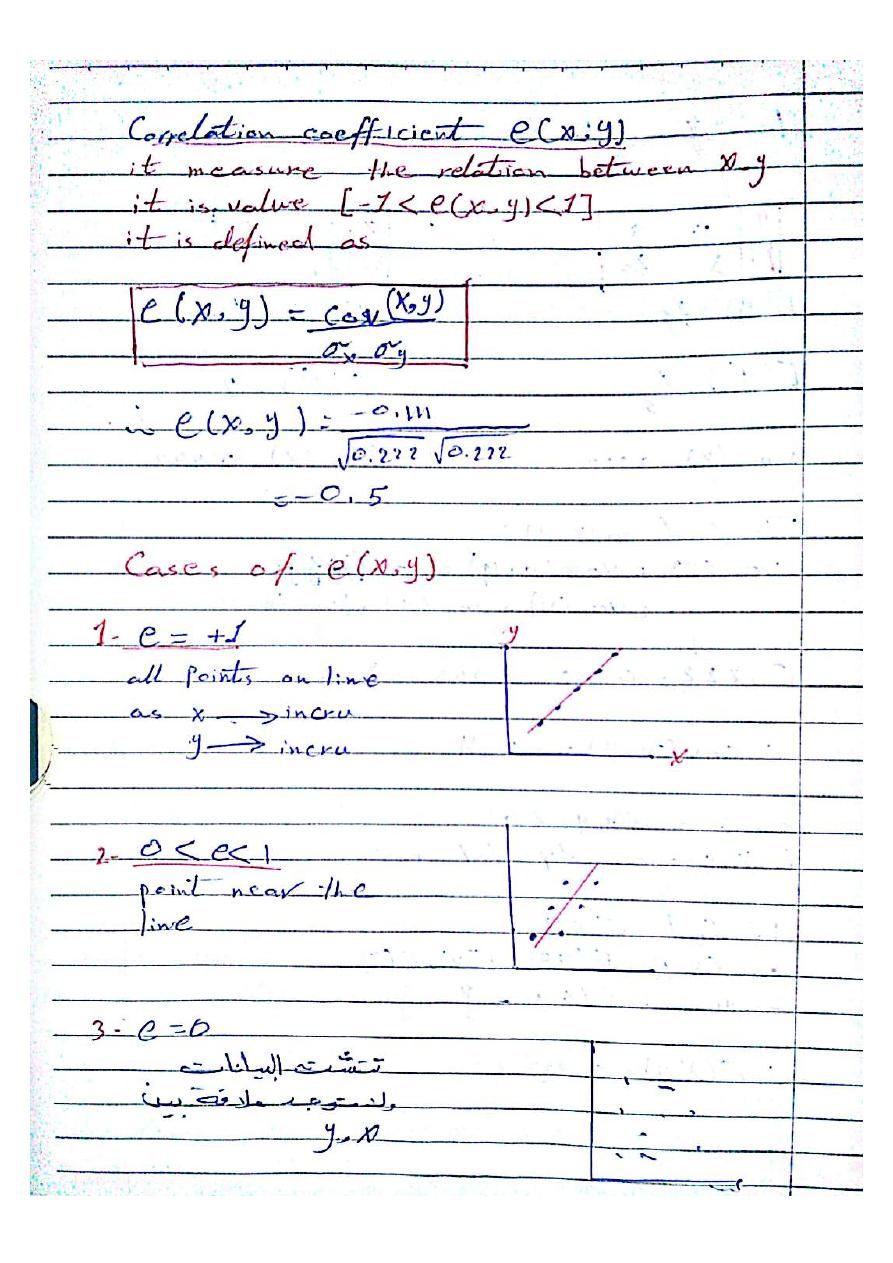 Correlation coefficient e(x,y)
it measure the relation between x,y
it is value [-1 < e(x,y) < 1]
it is defined as
e(x,y) = cov(x,y) / σx σy
in e(x,y) = -0.111 / √0.222 √0.222
= -0.5
Cases of e(x,y)
1- e = +1
y
all points on line
as x → incru
y → incru
x
2- 0 < e < 1
point near the
line
3- e = 0
تتشتت البيانات
ولا توجد علاقة بين
y, x